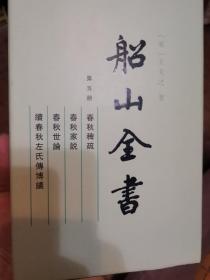 [明]王夫之 著
船山全書
第五册
春秋稗疏
春秋家説
春秋世論
續春秋左氏傳博議